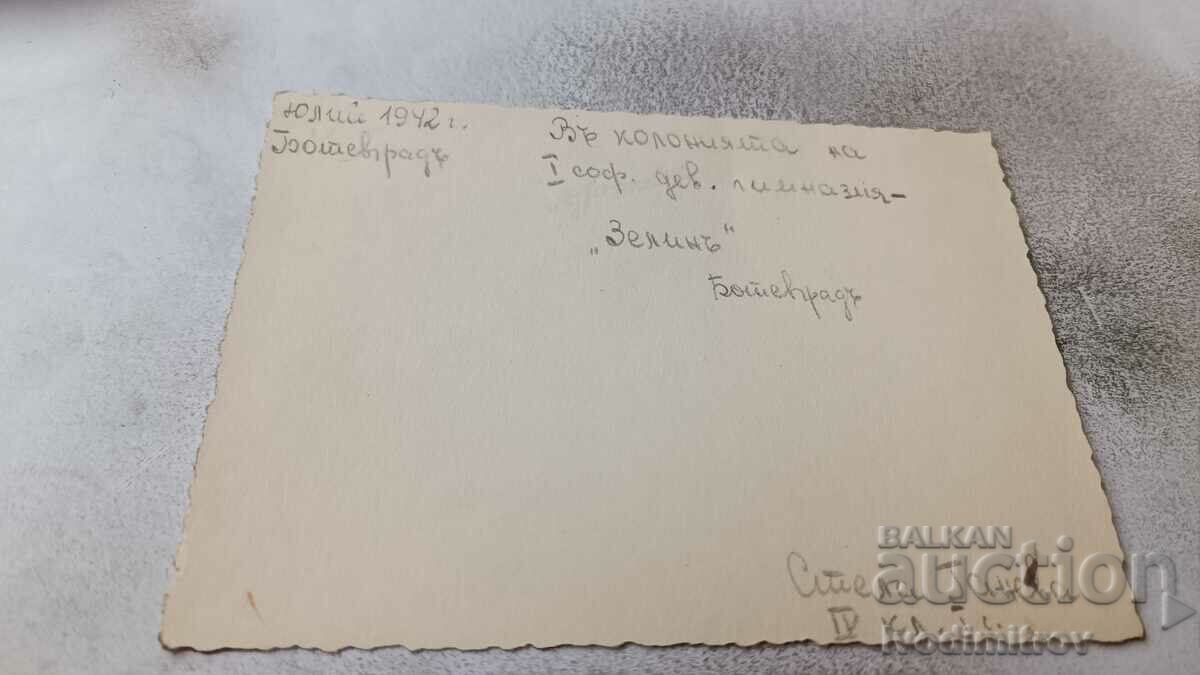 Юлий 1942 г.
Ботевградъ
Въ колонията на
I соф. дев. гимназия-
„Зелинъ“
Ботевградъ
Стела
IV кл.
BALKAN
auction
Ivodimitrov